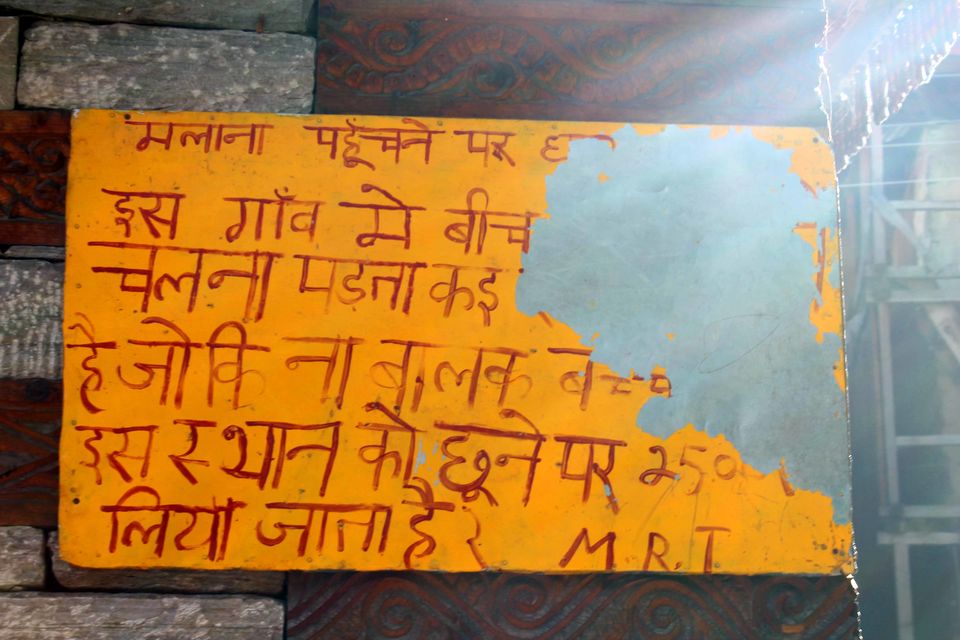 मलाना पहूँचने पर
इस गाँव मे बीच
चलना पड़ता कइ
है जो कि ना बालक
इस स्थान को छूने पर 250
लिया जाता है M.R.T